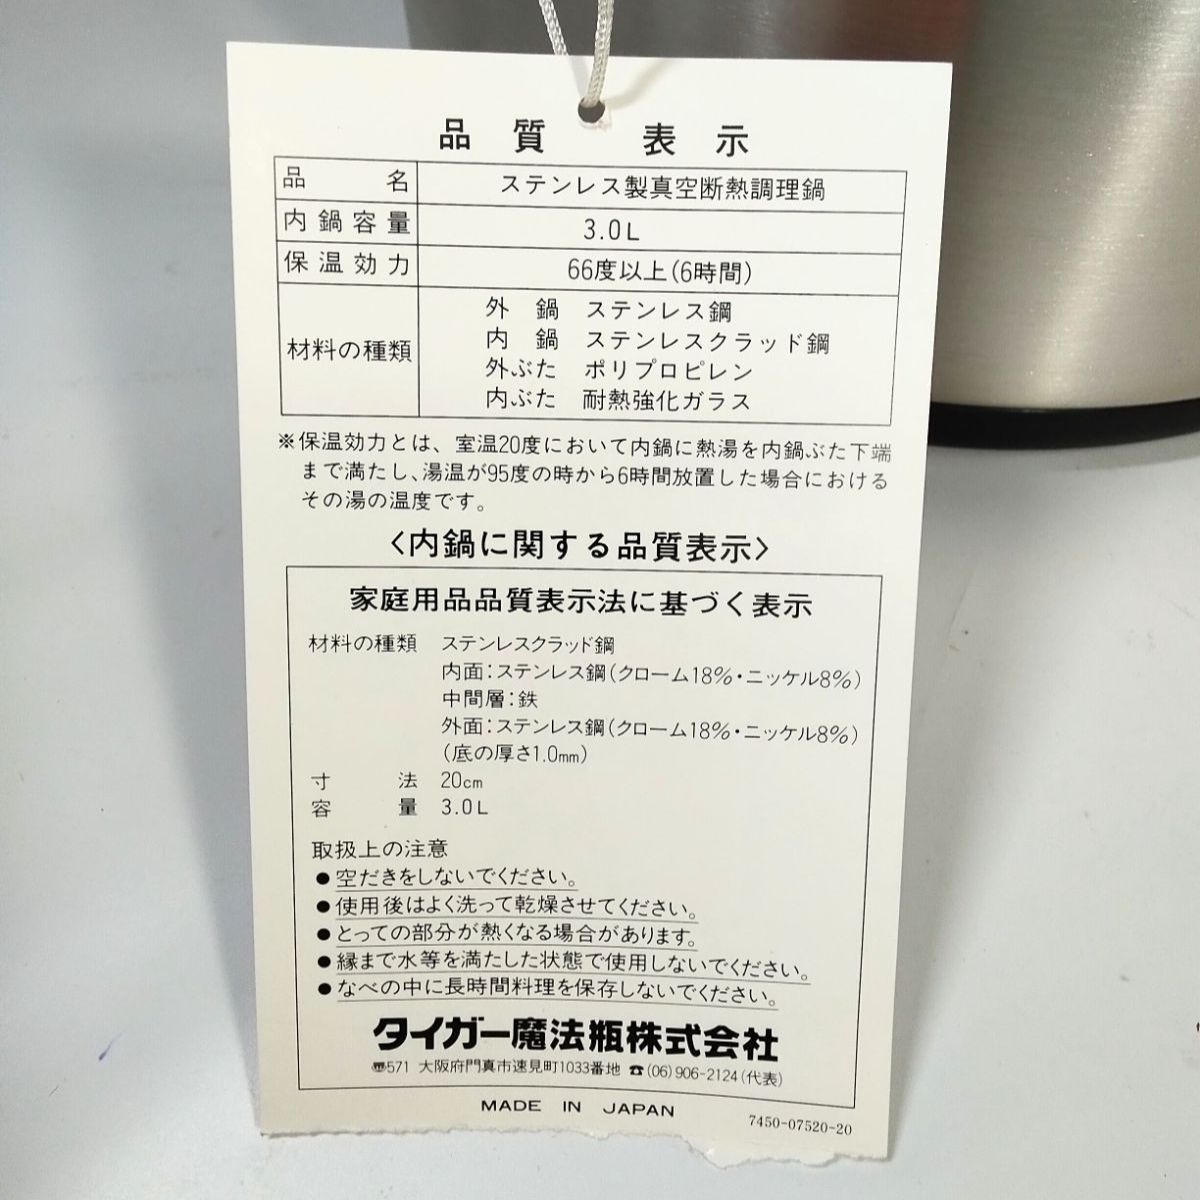 品質 表示
品名 ステンレス製真空断熱調理鍋
内鍋容量 3.0L
保温効力 66度以上(6時間)
材料の種類
外鍋 ステンレス鋼
内鍋 ステンレスクラッド鋼
外ぶた ポリプロピレン
内ぶた 耐熱強化ガラス
※保温効力とは、室温20度において内鍋に熱湯を内鍋ぶた下端
まで満たし、湯温が95度の時から6時間放置した場合における
その湯の温度です。
〈内鍋に関する品質表示〉
家庭用品品質表示法に基づく表示
材料の種類 ステンレスクラッド鋼
内面：ステンレス鋼(クローム18%・ニッケル8%)
中間層：鉄
外面：ステンレス鋼(クローム18%・ニッケル8%)
(底の厚さ1.0mm)
寸法 20cm
容量 3.0L
取扱上の注意
●空だきをしないでください。
●使用後はよく洗って乾燥させてください。
●とっての部分が熱くなる場合があります。
●縁まで水等を満たした状態で使用しないでください。
●なべの中に長時間料理を保存しないでください。
タイガー魔法瓶株式会社
〠571 大阪府門真市速見町1033番地 ☎(06)906-2124(代表)
MADE IN JAPAN
7450-07520-20